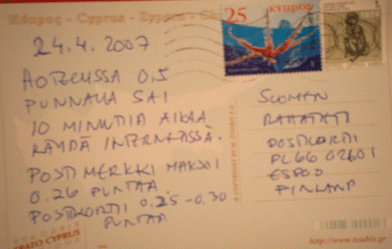 Κύπρος - Cyprus - Zypern
24.4.2007
HOTELLISSA 0.5
PUNNALLA SAI
10 MINUTIA AIKAA
KÄYDÄ INTERNETISSÄ.
POSTIMERKKI MAKSOI
0.26 PUNTAA
POSTIKORTTI 0,25-0.30
PUNTAA
25
ΚΥΠΡΟΣ
SUOMEN
RAHATIETO
POSTIKORTTI
PL 66 02601
ESPOO
FINLAND
CYPRUS